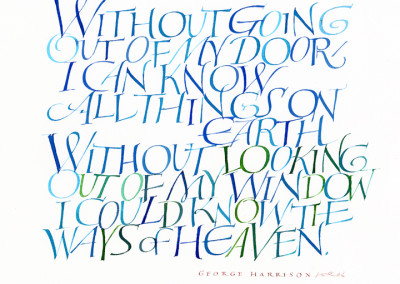 WITHOUT GOING
OUT OF MY DOOR
I CAN KNOW
ALL THINGS ON
EARTH
WITHOUT LOOKING
OUT OF MY WINDOW
I COULD KNOW THE
WAYS OF HEAVEN.
GEORGE HARRISON